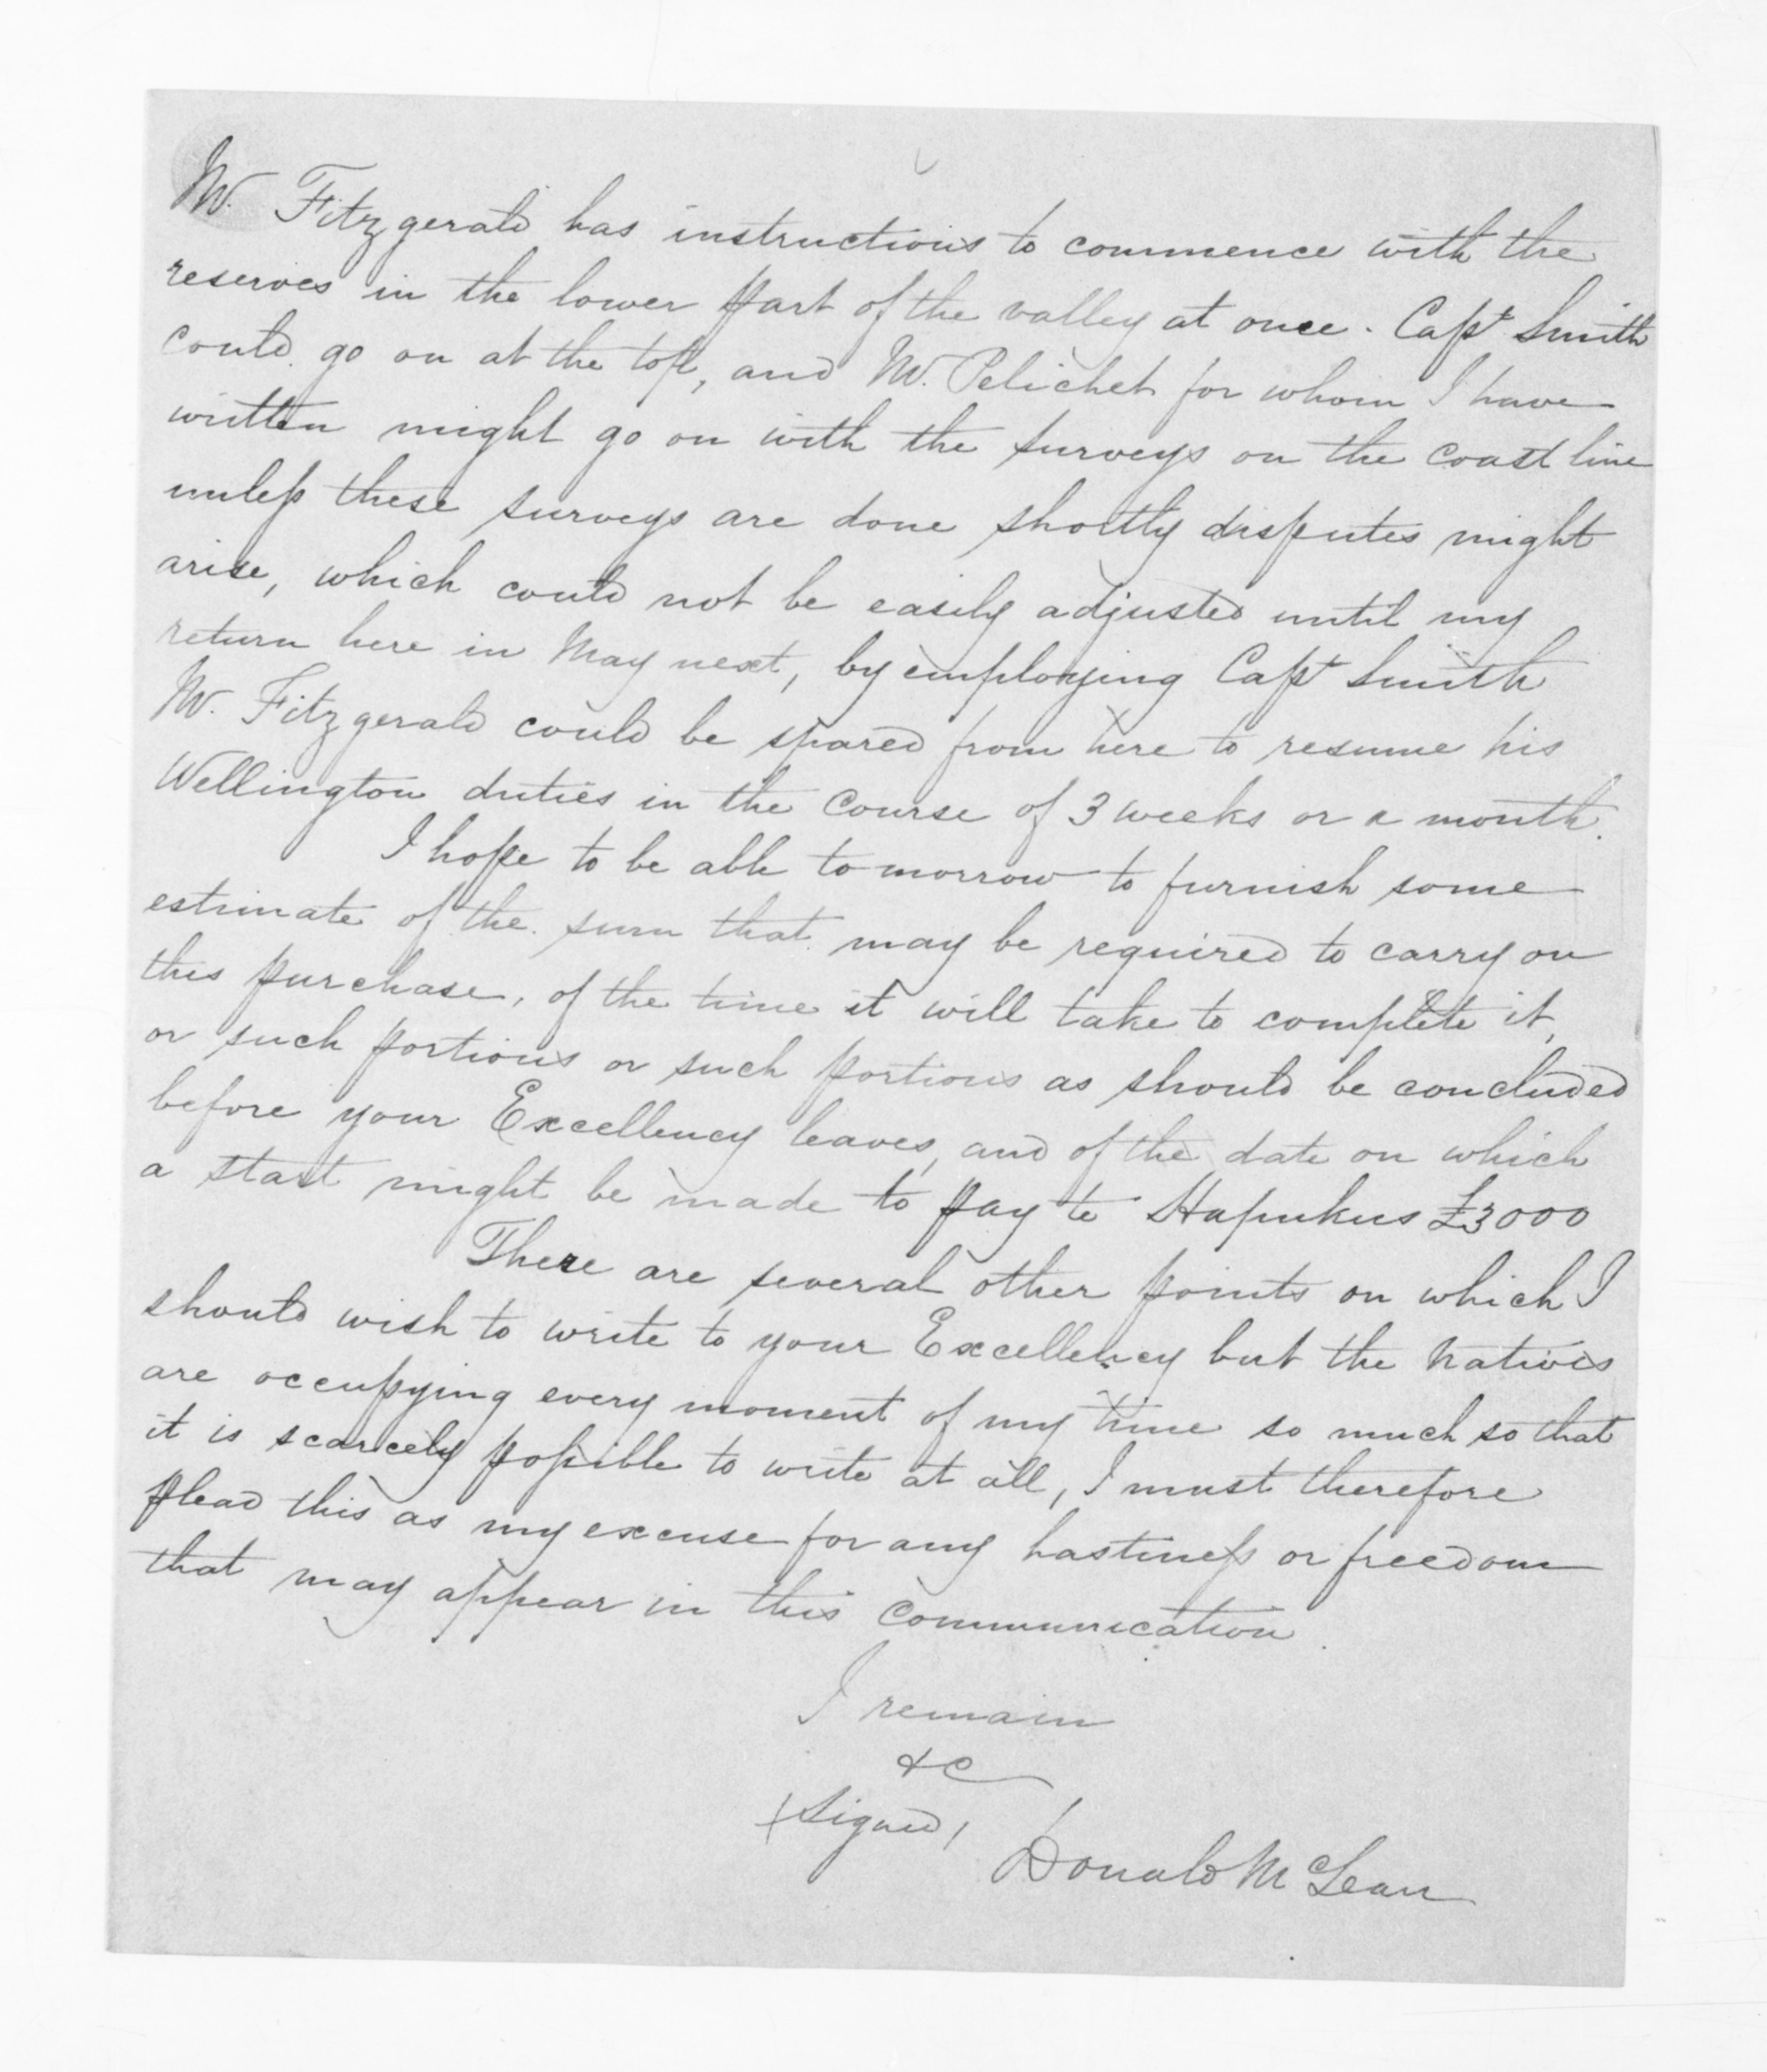 Mr. Fitzgerald has instructions to commence with the
reserves in the lower part of the valley at once. Capt Smith
could go on at the top, and Mr. Pelichet for whom I have
written might go on with the surveys on the coast line
unless these surveys are done shortly disputes might
arise, which could not be easily adjusted until my
return here in May next, by employing Capt Smith
Mr. Fitzgerald could be spared from here to resume his
Wellington duties in the course of 3 weeks or a month.
I hope to be able to morrow to furnish some
estimate of the sum that may be required to carry on
this purchase, of the time it will take to complete it,
or such portions or such portions as should be concluded
before your Excellency leaves, and of the date on which
a start might be made to pay to Hapukus £3000
There are several other points on which I
should wish to write to your Excellency but the natives
are occupying every moment of my time so much so that
it is scarcely possible to write at all, I must therefore
plead this as my excuse for any hastiness or freedom
that may appear in this communication.
I remain
&c
(Signed)
Donald McLean